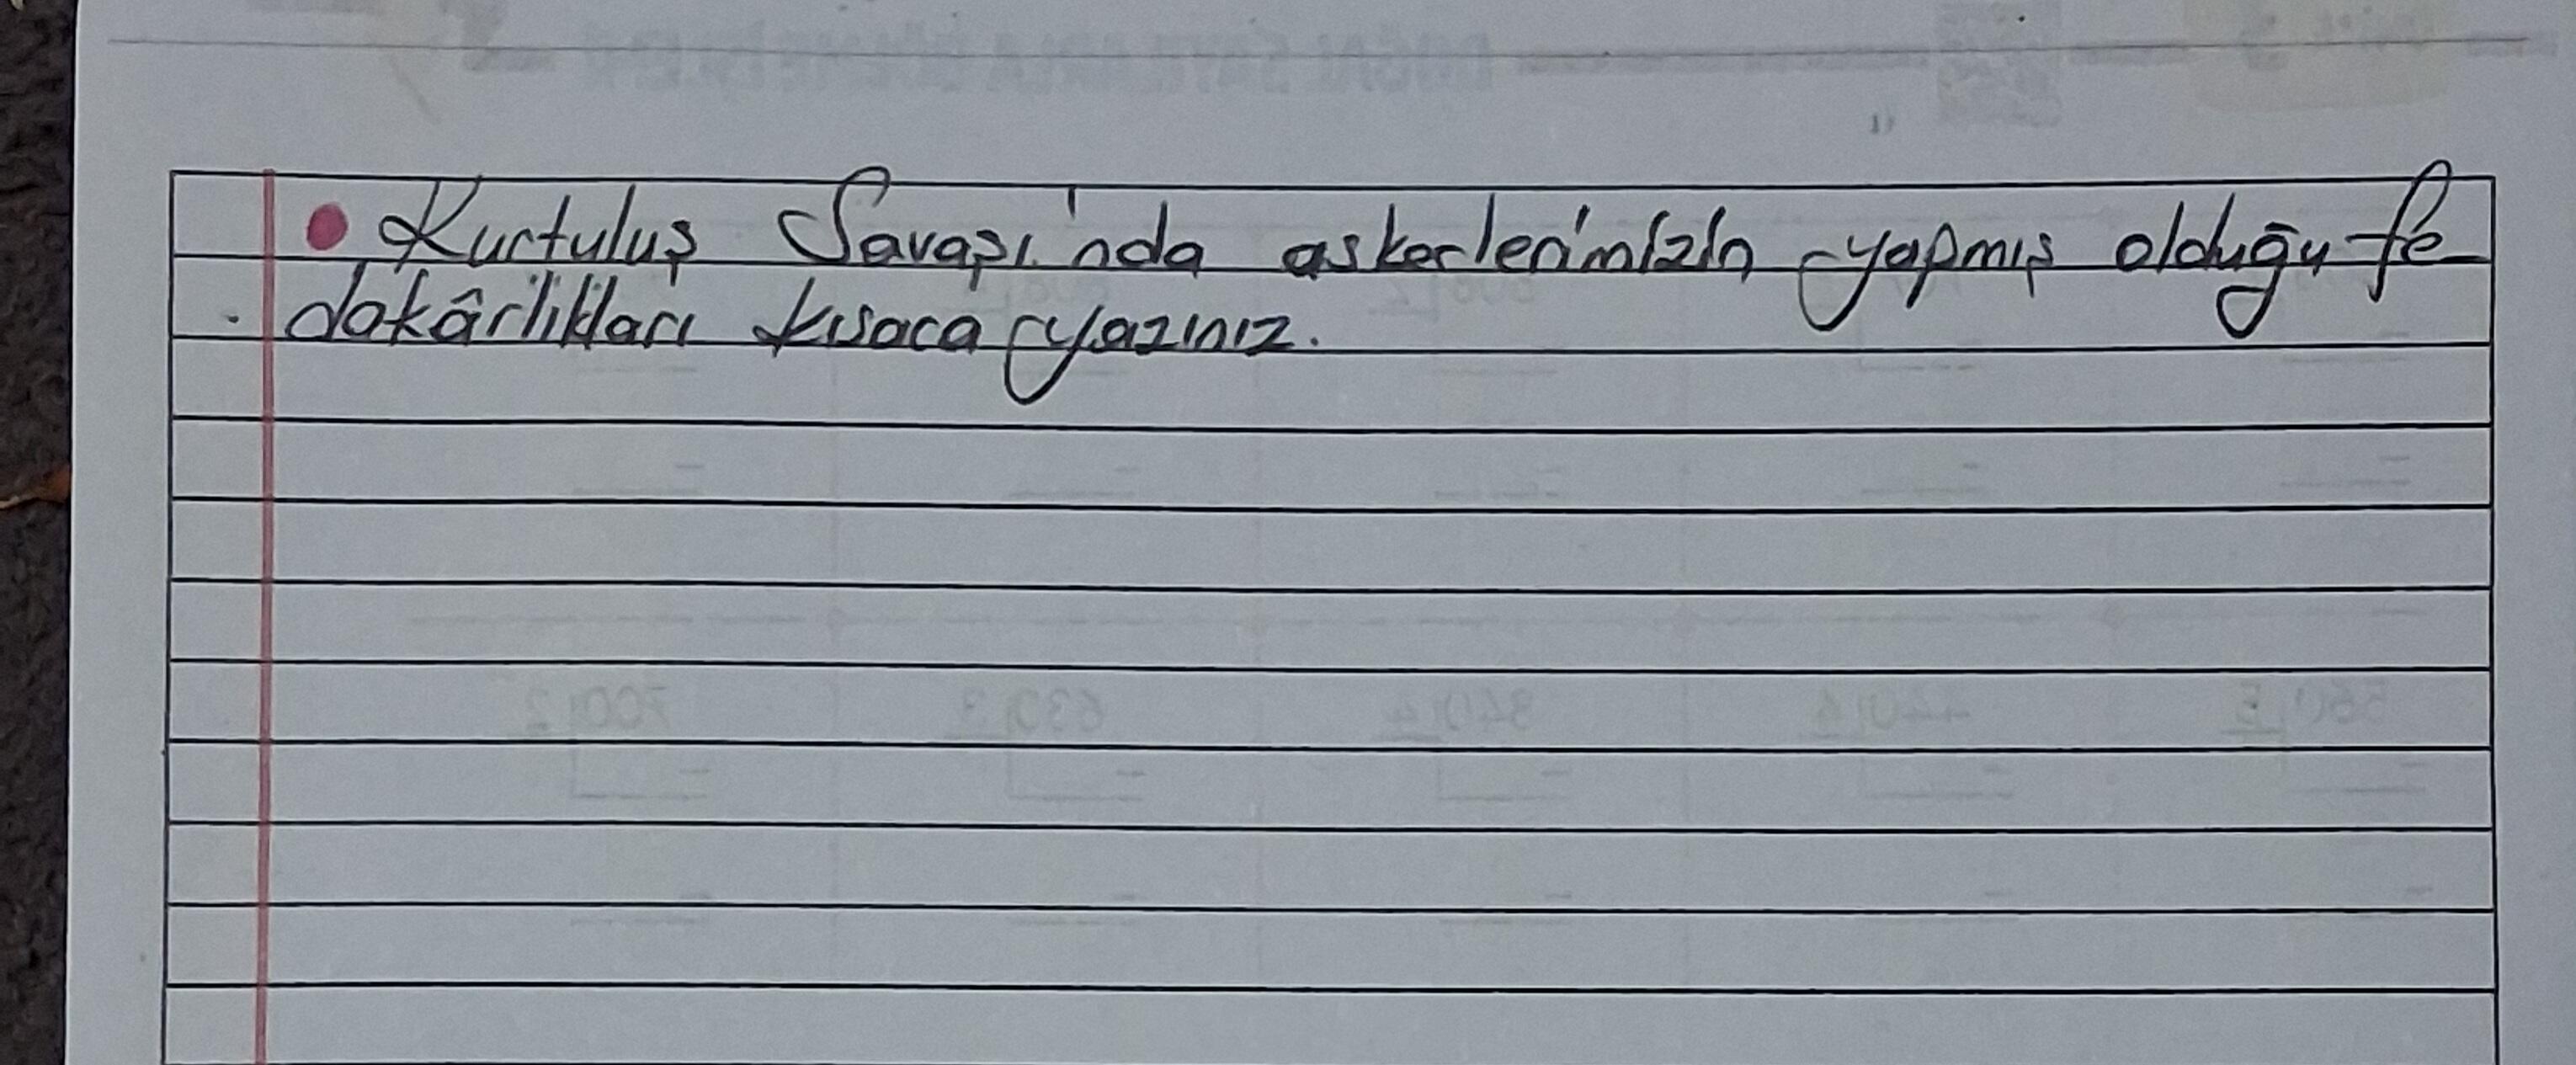 Kurtuluş Savaşı'nda askerlerimizin yapmış olduğu fe
dakârlıkları kısaca yazınız.